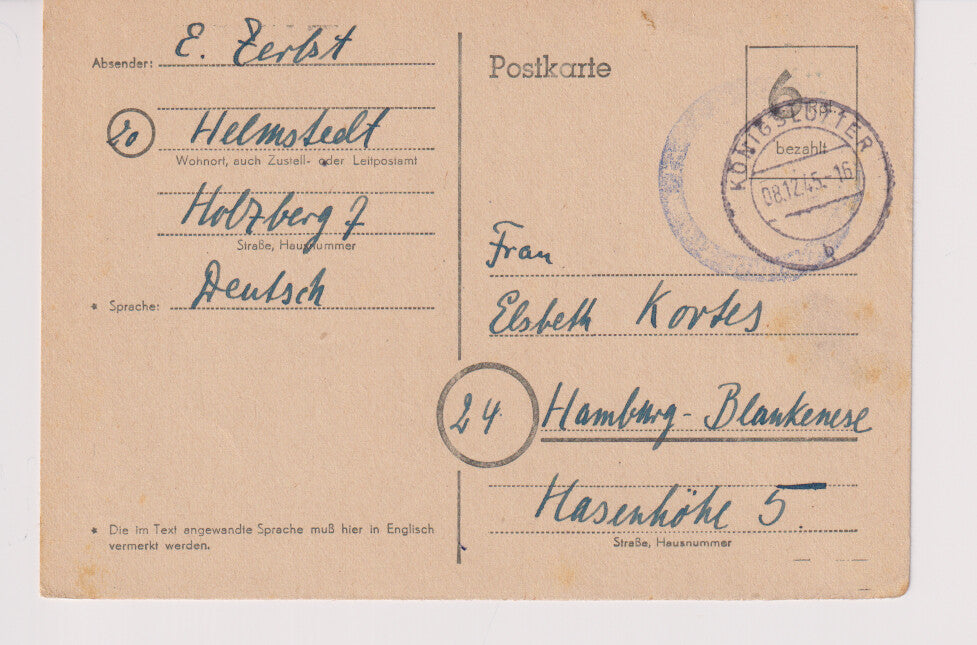 Absender: E. Zerbst
20 Helmstedt
Wohnort, auch Zustell- oder Leitpostamt
Holzberg 7
Straße, Hausnummer
* Sprache: Deutsch
* Die im Text angewandte Sprache muß hier in Englisch
vermerkt werden.
Postkarte
6
bezahlt
KÖNIGSLUTTER
08.12.45.-16
b
Frau
Elsbeth Kortes
24 Hamburg-Blankenese
Hasenhöhe 5.
Straße, Hausnummer